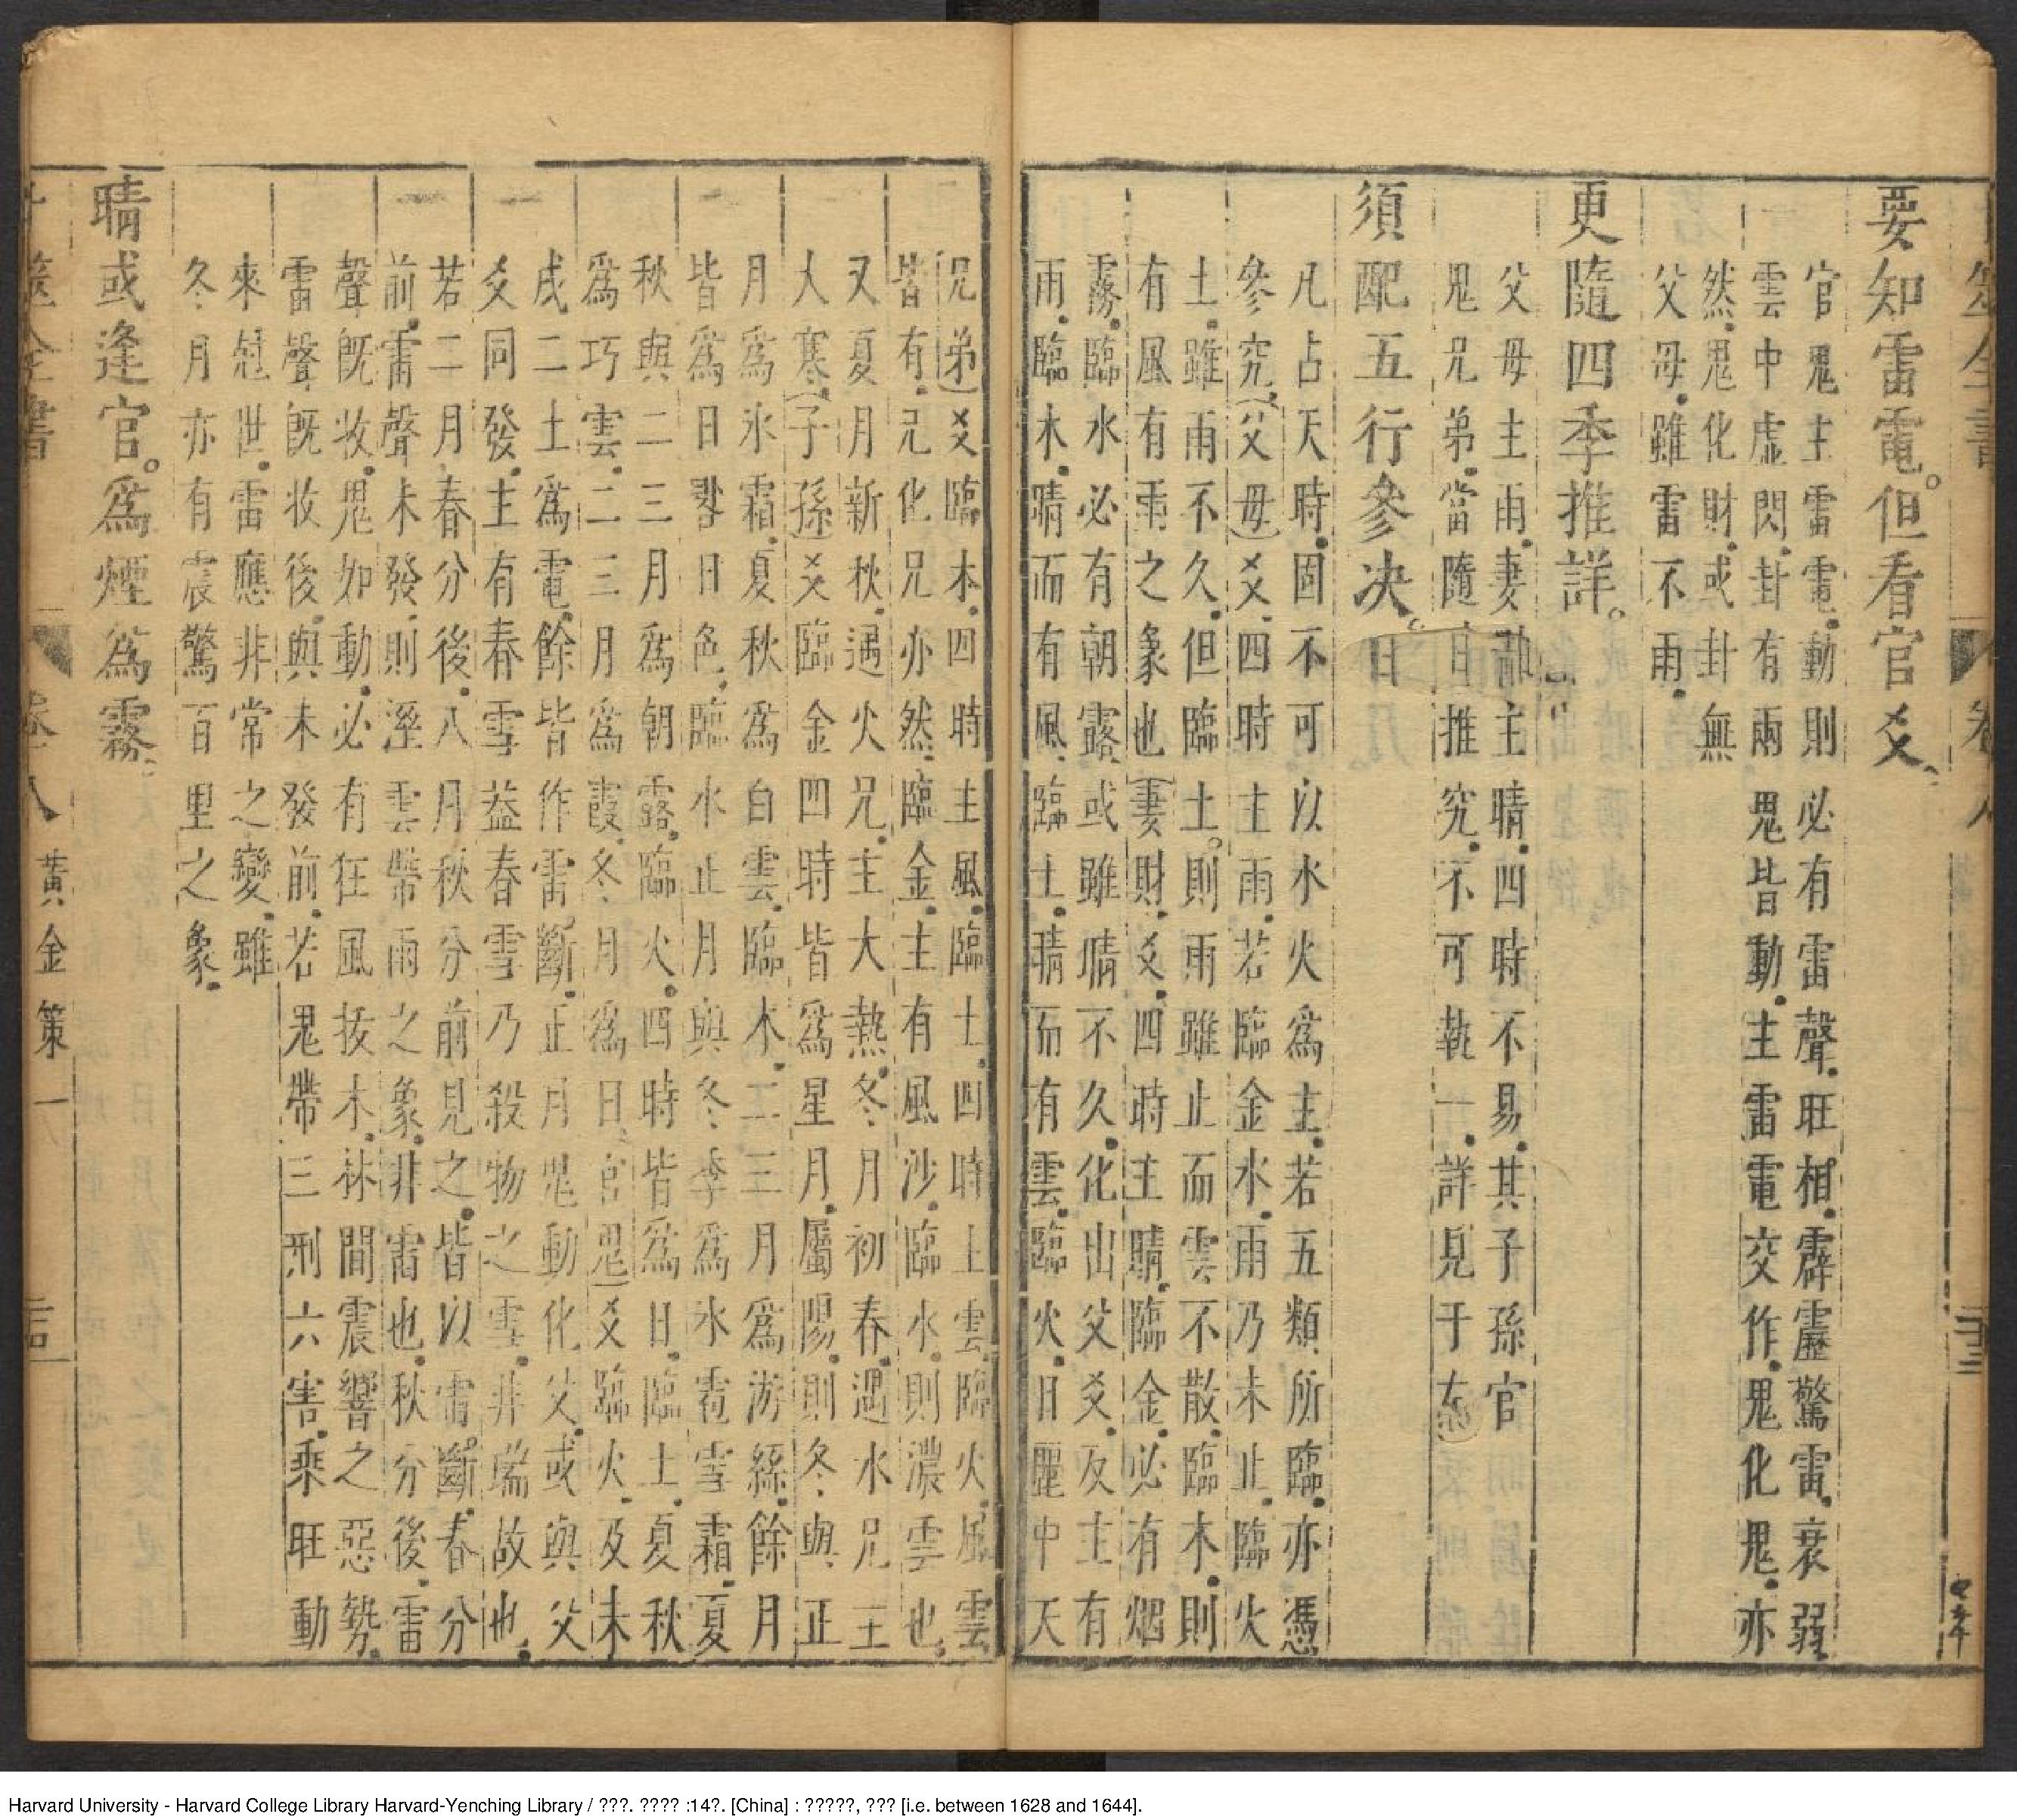 要知雷電。但看官爻。
官鬼主雷電動則必有雷聲旺相霹靂驚雷衰弱
雲中虛閃卦有兩鬼皆動主雷電交作鬼化鬼亦
然鬼化財或卦無
父母雖雷不雨
更隨四季推詳。
父母主雨妻財主晴四時不易其子孫官
鬼兄弟當隨日推究不可執一詳見于左
須配五行參決。
凡占天時固不可以水火為主若五類所臨亦憑
參究父母爻四時主雨若臨金水雨乃未止臨火
土雖雨不久但臨土則雨雖止而雲不散臨木則
有風有雨之象也妻財爻四時主晴臨金必有烟
霧臨水必有朝露或雖晴不久化出父爻反主有
雨臨木晴而有風臨土晴而有雲臨火日麗中天
兄弟爻臨木四時主風臨土四時上雲臨火風雲
皆有兄化兄亦然臨金主有風沙臨水則濃雲也
又夏月新秋遇火兄主大熱冬月初春遇水兄主
大寒子孫爻臨金四時皆爲星月屬陽則冬與正
月爲氷霜夏秋爲白雲臨木二三月爲游絲餘月
皆爲日暑日色臨水正月與冬季爲氷雹雪霜夏
秋與二三月爲朝露臨火四時皆爲日臨土夏秋
爲巧雲二三月爲霞冬月爲日官鬼爻臨火及未
戌二土爲電餘皆作雷斷正月鬼動化父或與父
爻同發主有春雪益春雪乃殺物之雪非瑞故也
若二月春分後八月秋分前見之皆以雷斷春分
前雷聲未發則溼雲帶雨之象非雷也秋分後雷
聲旣收鬼如動必有狂風拔木林間震響之惡勢
雷聲旣收後與未發前若鬼帶三刑六害乘旺動
來尅世雷應非常之變雖
冬月亦有震驚百里之象
晴或逢官。爲煙爲霧。
筮全書
卷八 黃金策一